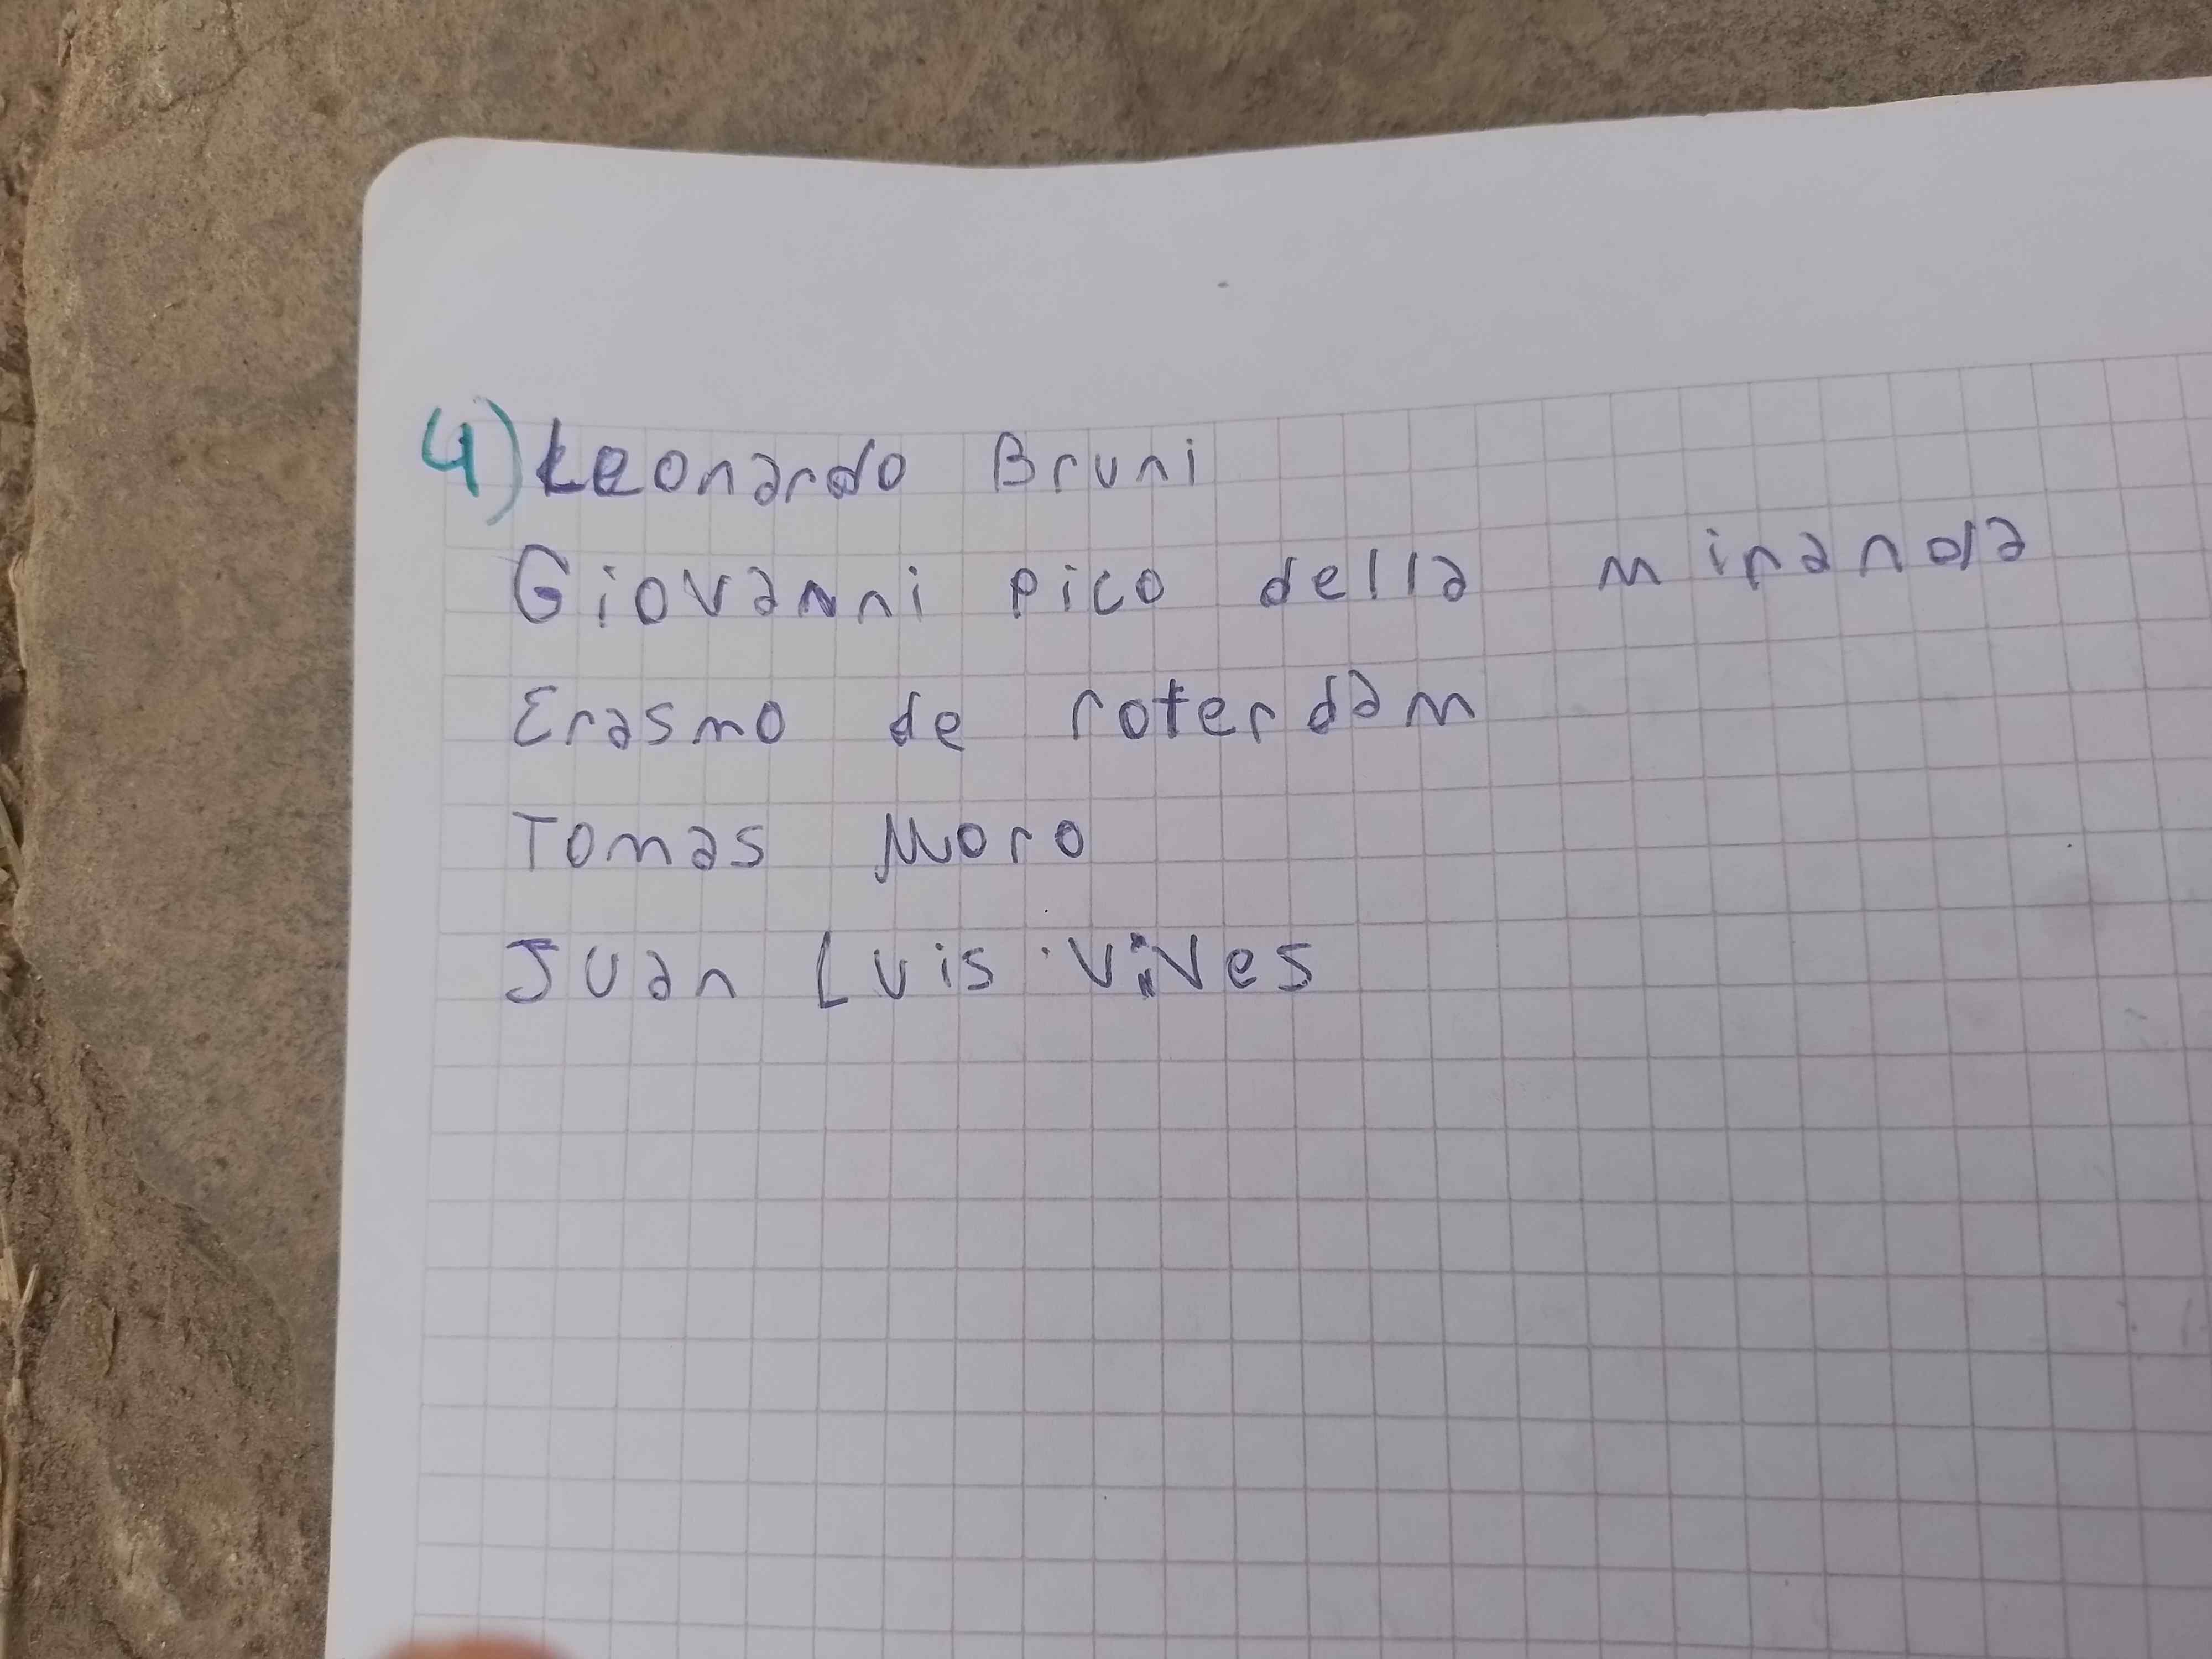 4) Leonardo Bruni
Giovanni pico della miranola
Erasmo de roterdam
Tomas Moro
Juan Luis Vives